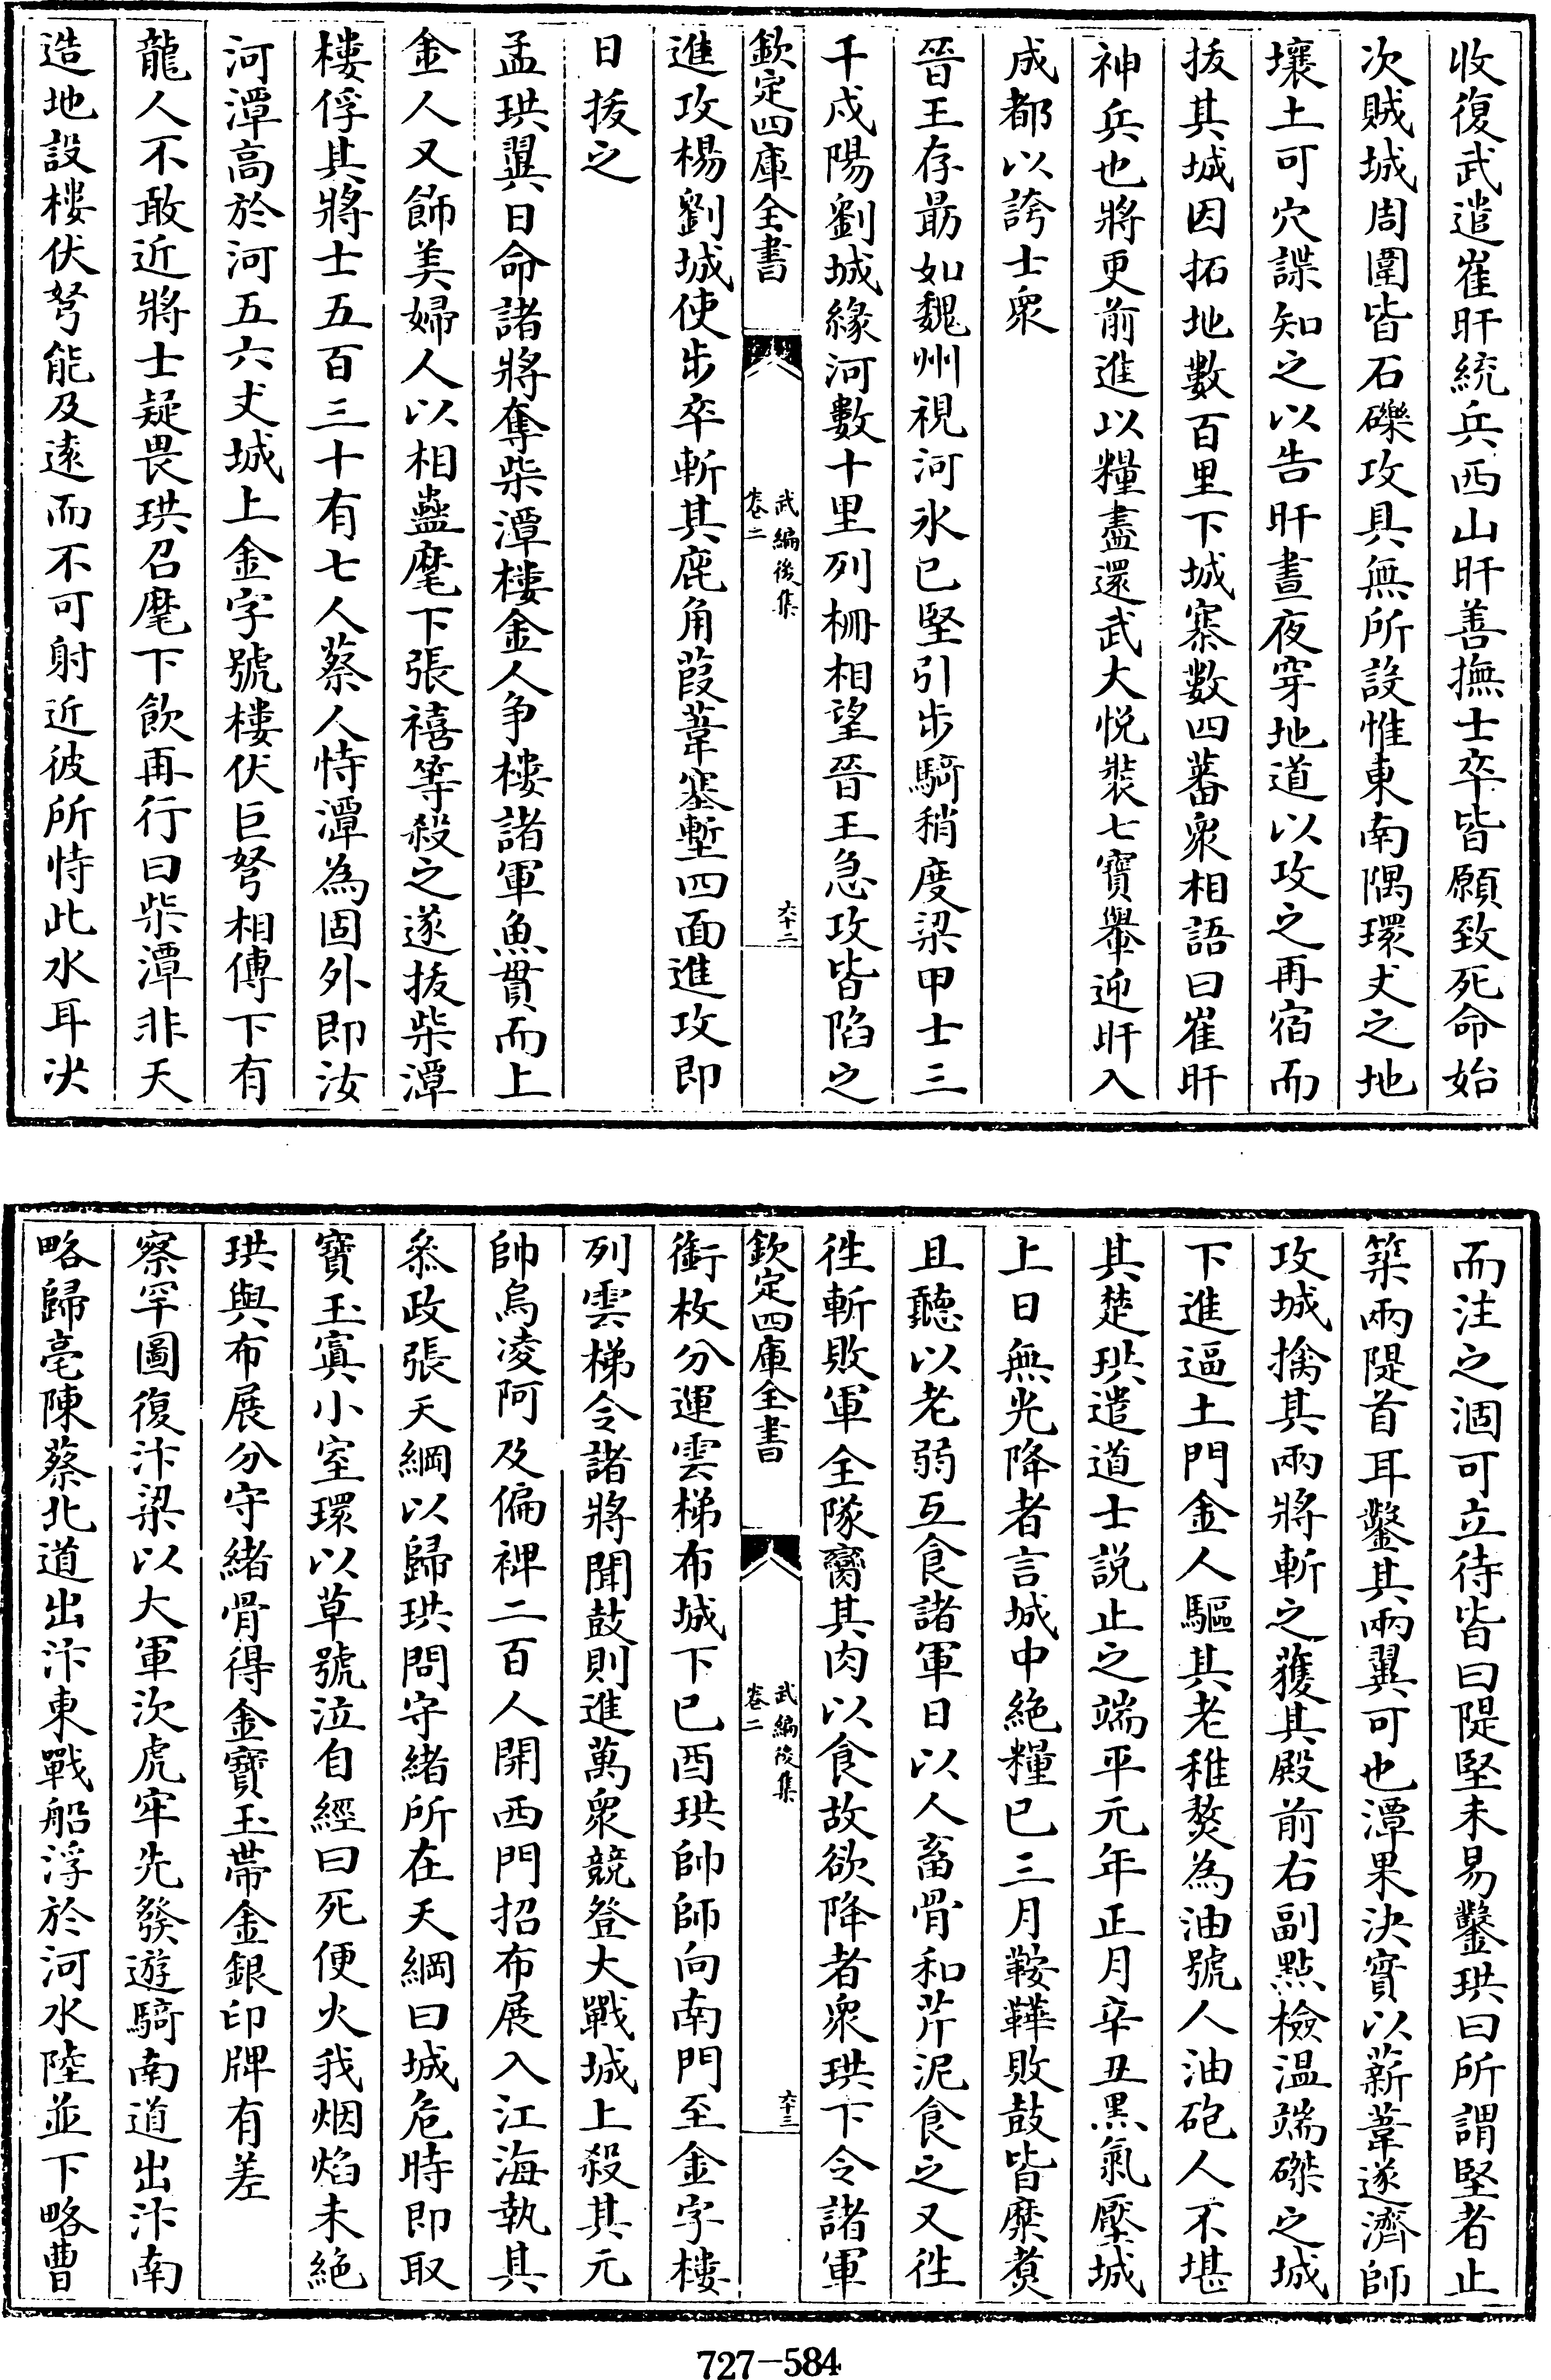 收復武遣崔旰統兵西山旰善撫士卒皆願致死命始
次賊城周圍皆石礫攻具無所設惟東南隅環丈之地
壤土可穴諜知之以告旰晝夜穿地道以攻之再宿而
拔其城因拓地數百里下城寨數四蕃衆相語曰崔旰
神兵也將更前進以糧盡還武大悦裝七寶轝迎旰入
成都以誇士衆
晉王存勗如魏州視河氷已堅引步騎稍度梁甲士三
千戍陽劉城緣河數十里列柵相望晉王急攻皆陷之
欽定四庫全書
武編後集
卷二
六十二
進攻楊劉城使步卒斬其鹿角葭葦塞塹四面進攻即
日拔之
孟珙翼日命諸將奪柴潭樓金人争樓諸軍魚貫而上
金人又飾美婦人以相蠱麾下張禧等殺之遂拔柴潭
樓俘其將士五百三十有七人蔡人恃潭為固外即汝
河潭高於河五六丈城上金字號樓伏巨弩相傳下有
龍人不敢近將士疑畏珙召麾下飲再行曰柴潭非天
造地設樓伏弩能及遠而不可射近彼所恃此水耳决
而注之涸可立待皆曰隄堅未易鑿珙曰所謂堅者止
築兩隄首耳鑿其兩翼可也潭果决實以薪葦遂濟師
攻城擒其兩將斬之獲其殿前右副點檢温端磔之城
下進逼土門金人驅其老稚熬為油號人油砲人不堪
其楚珙遣道士説止之端平元年正月辛丑黑氣壓城
上日無光降者言城中絶糧已三月鞍鞾敗鼓皆糜煑
且聽以老弱互食諸軍日以人畜骨和芹泥食之又徃
徃斬敗軍全隊臠其肉以食故欲降者衆珙下令諸軍
欽定四庫全書
武編後集
卷二
六十三
銜枚分運雲梯布城下已酉珙帥師向南門至金字樓
列雲梯令諸將聞鼓則進萬衆競登大戰城上殺其元
帥烏凌阿及偏裨二百人開西門招布展入江海執其
叅政張天綱以歸珙問守緒所在天綱曰城危時即取
寶玉寘小室環以草號泣自經曰死便火我烟焰未絶
珙與布展分守緒骨得金寶玉帶金銀印牌有差
察罕圖復汴梁以大軍次虎牢先發遊騎南道出汴南
略歸亳陳蔡北道出汴東戰船浮於河水陸並下略曹
727—584